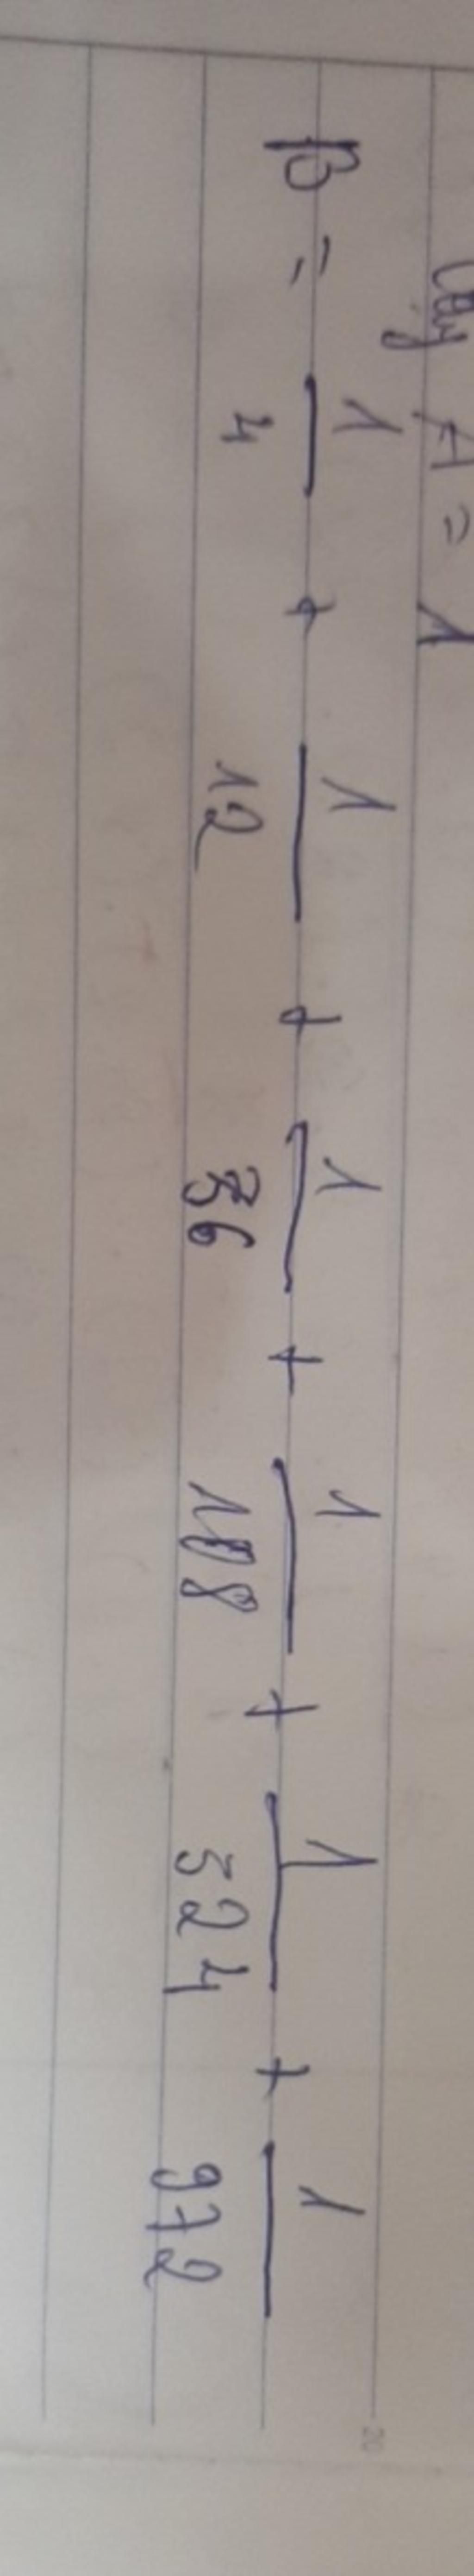 Vậy A = 1
B = 1/4 + 1/12 + 1/36 + 1/108 + 1/324 + 1/972
20